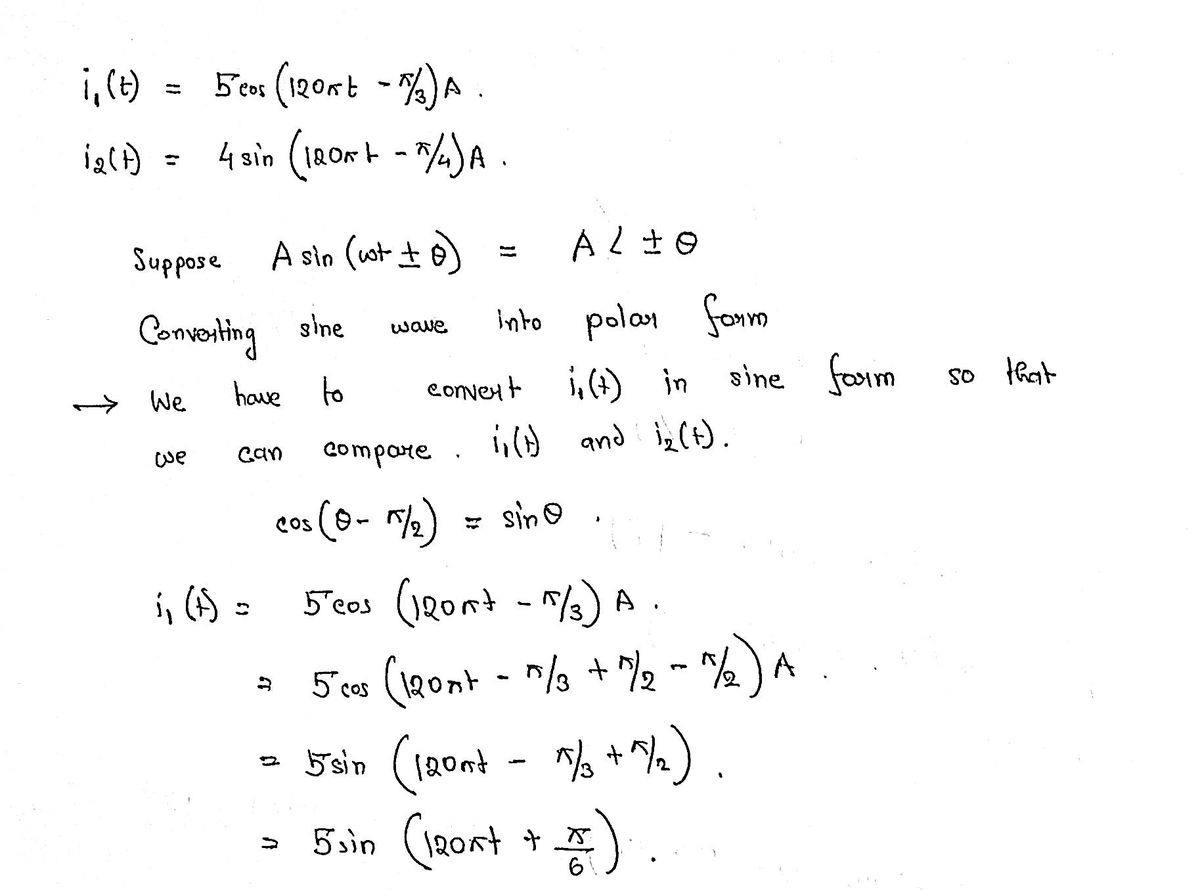 i₁(t) = 5cos(120πt - π/3)A .
i₂(t) = 4 sin (120πt - π/4)A .
Suppose A sin (ωt ± θ) = A ∠ ± θ
Converting sine wave into polar form
→ We have to convert i₁(t) in sine form so that
we can compare . i₁(t) and i₂(t).
cos(θ - π/2) = sinθ .
i₁(t) = 5cos (120πt - π/3) A .
= 5cos (120πt - π/3 + π/2 - π/2) A .
= 5sin (120πt - π/3 + π/2) .
= 5sin (120πt + π/6) .